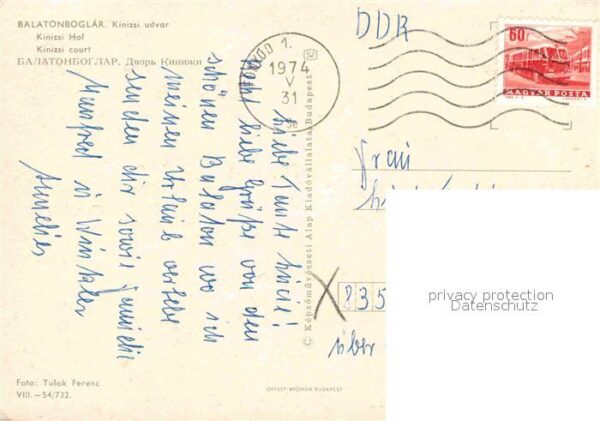 BALATONBOGLÁR. Kinizsi udvar
Kinizsi Hof
Kinizsi court
БАЛАТОНБОГЛАР. Дворь Кинижи
1.
1974
V
31
DDR
60f
MAGYAR POSTA
Liebe Tante
recht liebe Grüße von den
schönen Balaton wo ich
meinen Urlaub verlebe
senden dir sowie Familie
Manfred u
Frau
X
35
über
© Képzőművészeti Alap Kiadóvállalata, Budapest
privacy protection
Datenschutz
Foto: Tulok Ferenc
VIII.—54/732.
OFFSET-NYOMDA BUDAPEST